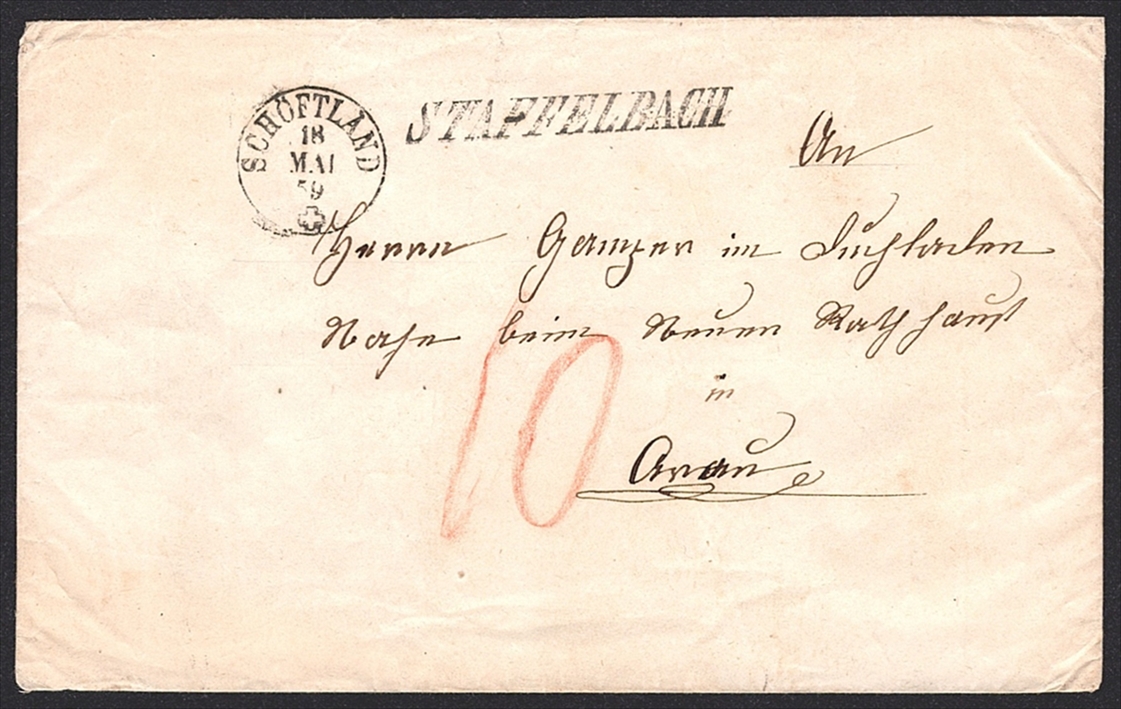 SCHÖFTLAND
18
MAI
59
STAFFELBACH
An
Herrn Gamper im Tuchladen
Nahe beim Neuen Rathhaus
in
Arau
10